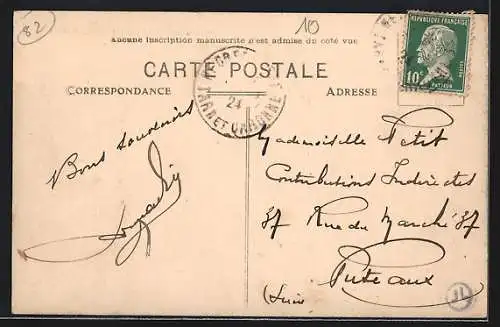 82
10
Aucune inscription manuscrite n'est admise du côté vue
REPUBLIQUE FRANÇAISE
10c
PASTEUR
POSTES
CARTE POSTALE
TARN ET GARONNE
24
CORRESPONDANCE
ADRESSE
Bons souvenirs
Mademoiselle Petit
Contributions Indirectes
37 Rue du Marché 37
Puteaux
(Seine